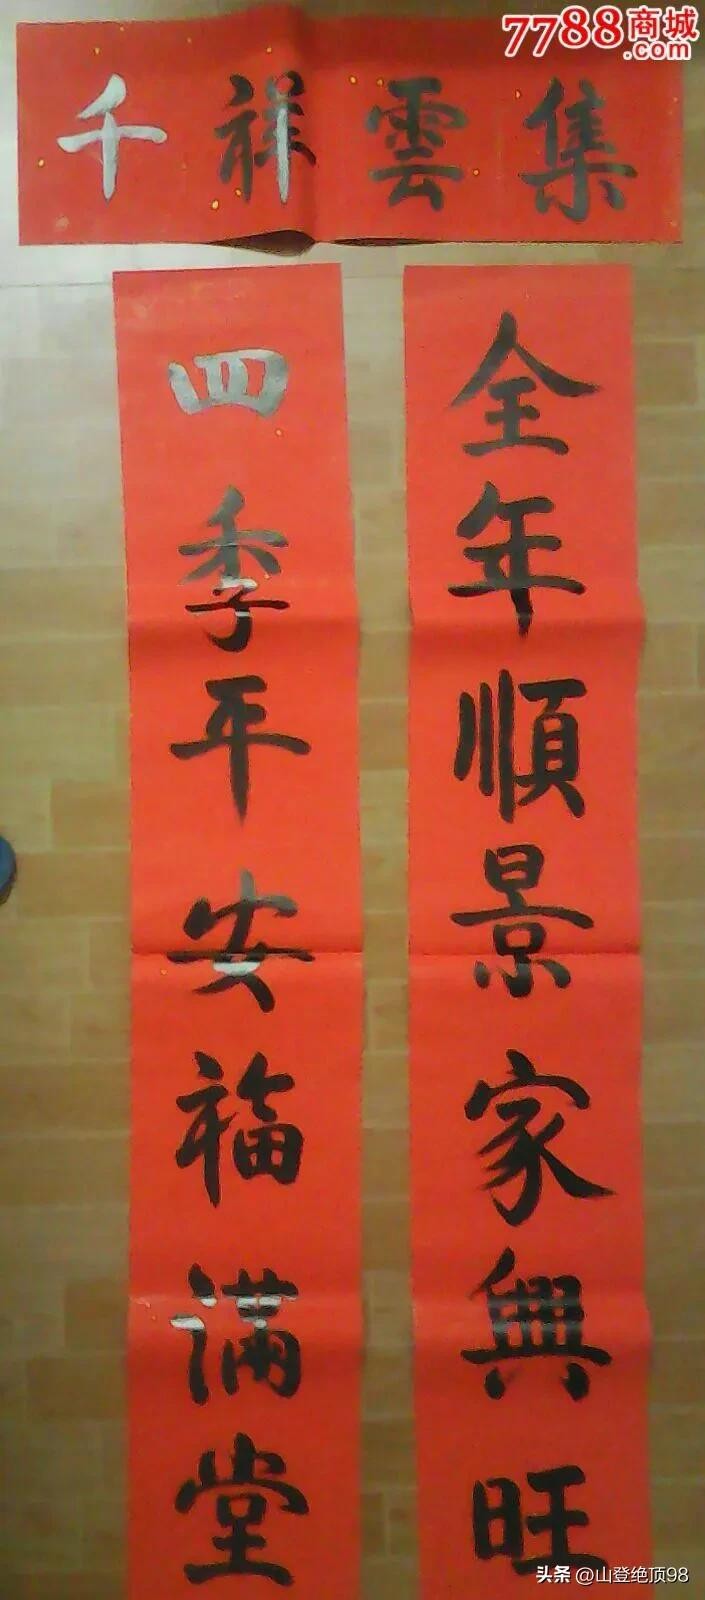 7788商城
.com
千祥雲集
全年順景家興旺
四季平安福满堂
头条 @山登绝顶98